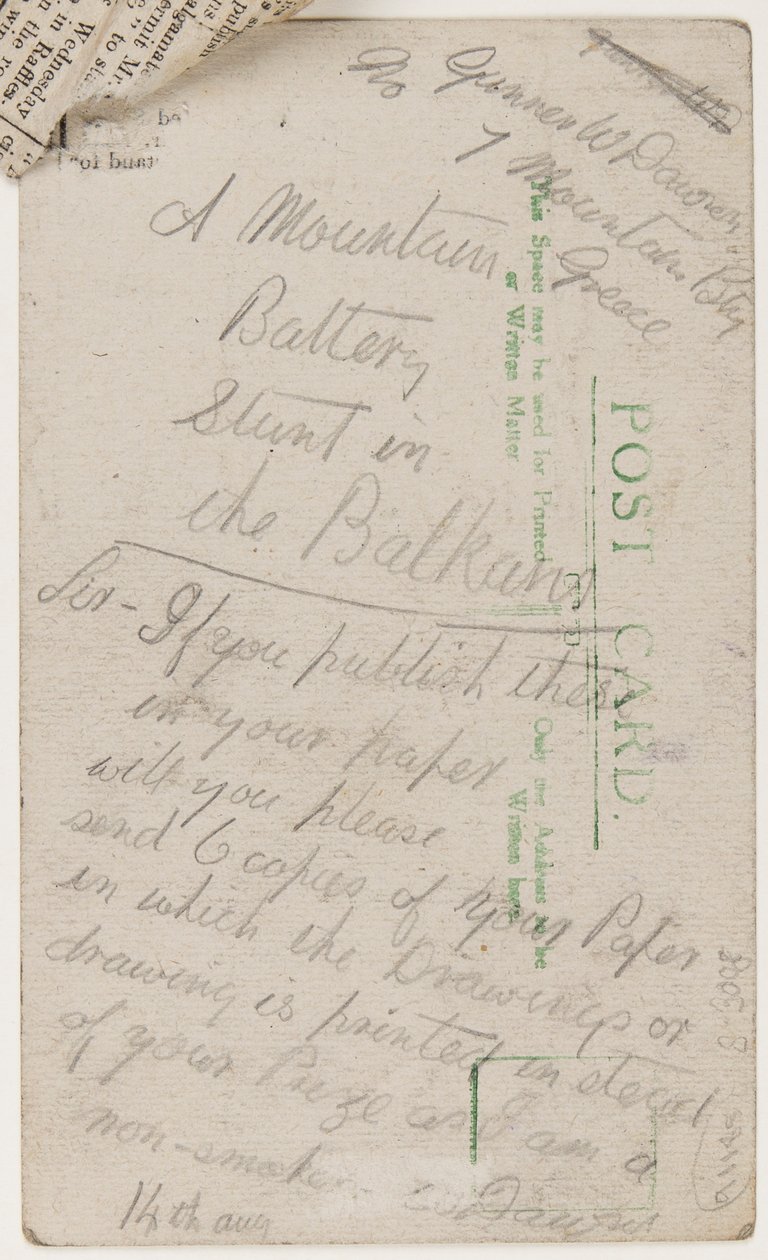 To Gunner W Dawson
7 Mountain Bty
Greece
A Mountain
Battery
Stunt in
the Balkans
Sir - If you publish these
in your paper
will you please
send 6 copies of your Paper
in which the Drawings or
drawing is printed in stead
of your Prize as I am a
non-smoker
W Dawson
14th aug
POST CARD.
This Space may be used for Printed
or Written Matter
Only the Address to be
Written here
Wednesday
in Raffles.
in the